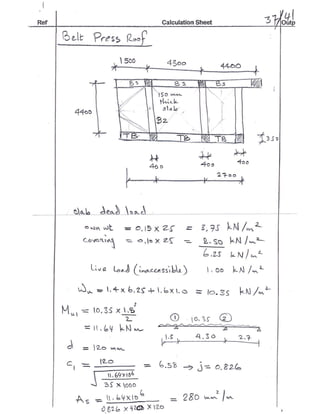 Ref Calculation Sheet 37/41 Outp
Belt Press Roof
1500 4300 4400
B3 B3 B3
150 mm
thick
slab
4400
B2
TB TB TB
350
400 400 400
2700
slab dead load
own wt = 0.15 x 25 = 3.75 kN/m²
covering = 0.10 x 25 = 2.50 kN/m²
6.25 kN/m²
Live Load (inaccessible) 1.00 kN/m²
Wu = 1.4 x 6.25 + 1.6x1.0 = 10.35 kN/m²
Mu1 = 10.35 x 1.5²/2
① 10.35 ②
= 11.64 kNm
1.5 4.30 2.7
d = 120 mm
C1 = 120 / √(11.64x10⁶ / 35 x 1000) = 6.58 → j = 0.826
As = 11.64x10⁶ / 0.826 x x 120 = 280 mm²/m